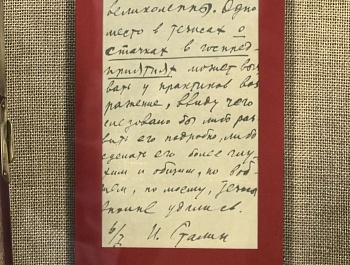 великолепно. Одно
место в тезисах о
стачках в госпред-
приятиях может выз
вать у практиков воз
ражение, ввиду чего
следовало бы либо раз
вить его подробно, либо
сделать его более глу
хим и общим, но во
по моему, тезисы
вполне удались.
И. Сталин